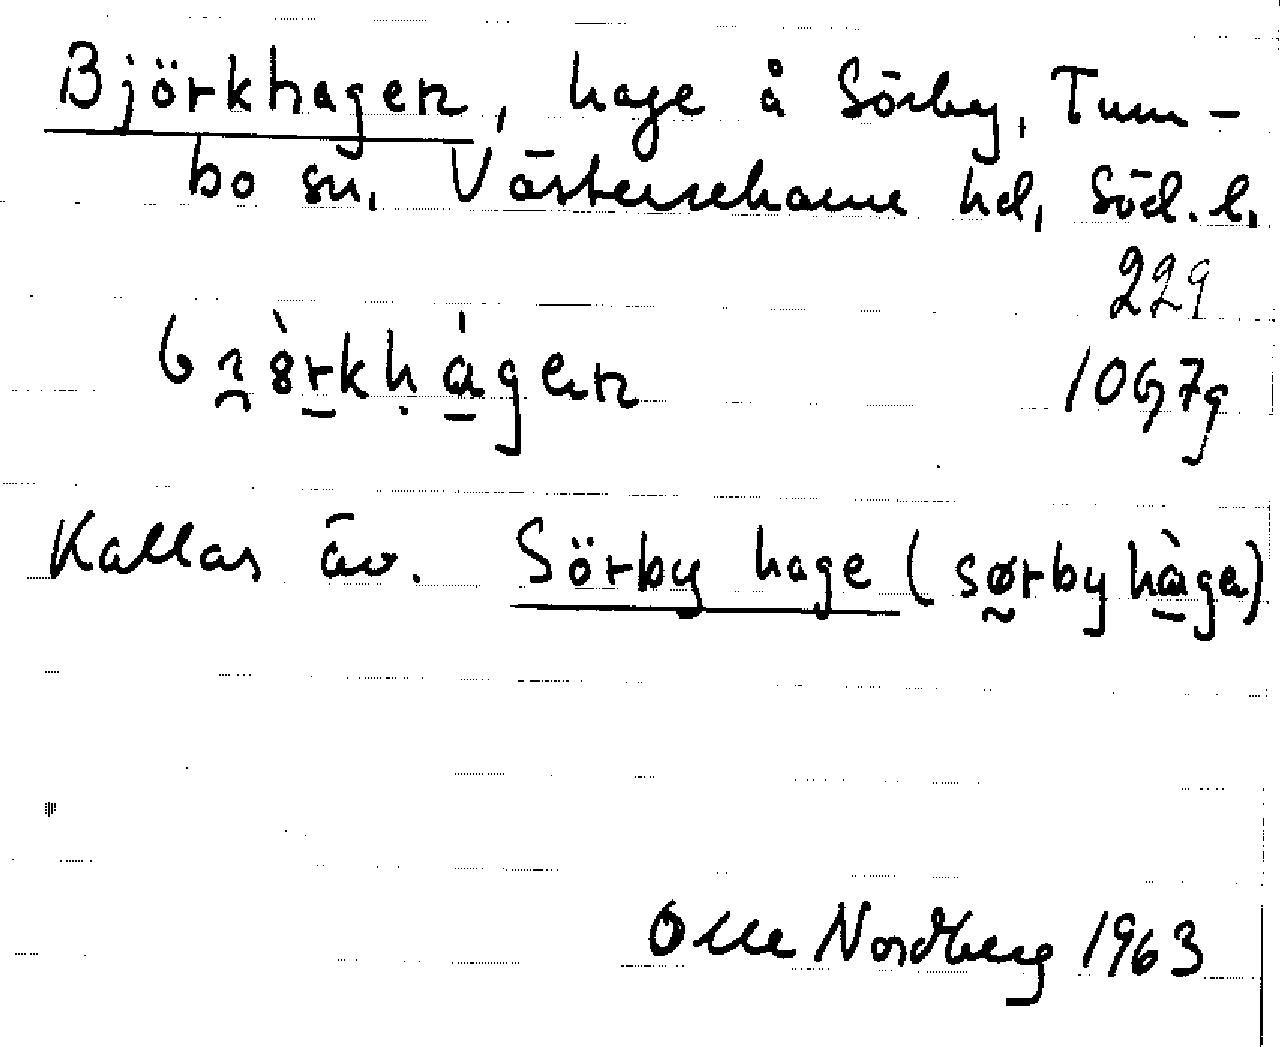 Björkhagen, hage å Sörby, Tum-
bo sn. Västerrekarne hd, Söd. l.
229
björkhágen 10G7g
Kallas äv. Sörby hage (sørby hàga)
Olle Nordberg 1963